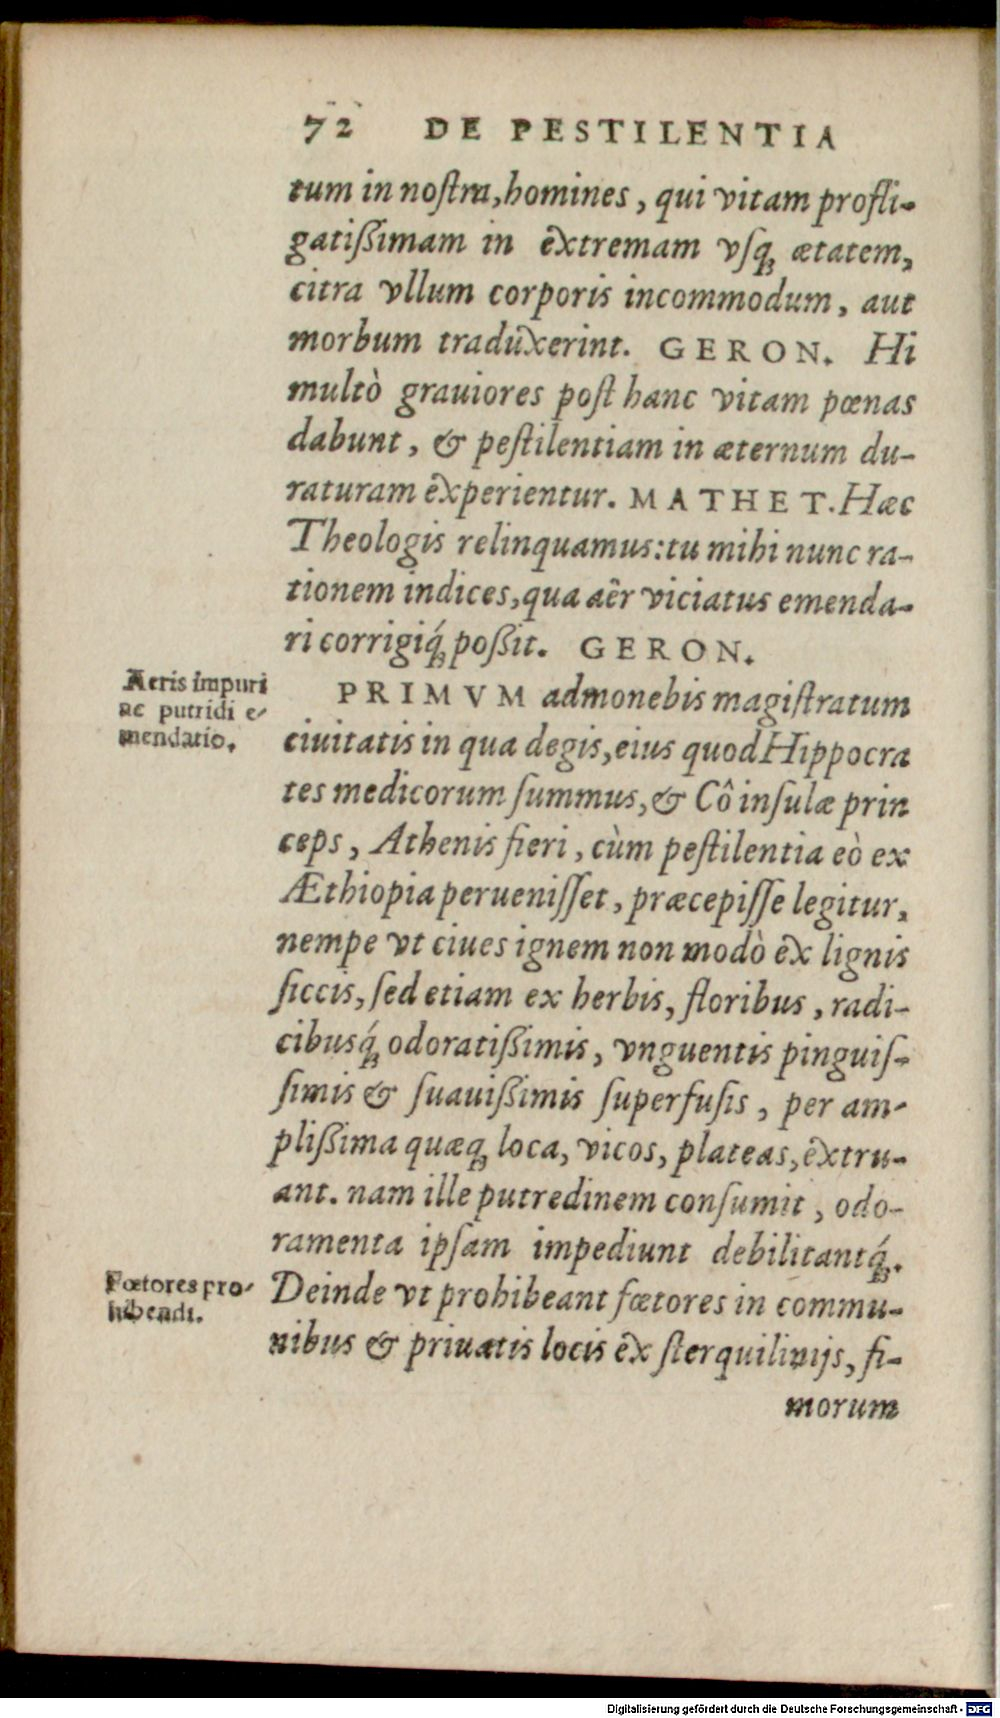 72 DE PESTILENTIA
tum in noſtra, homines, qui vitam profli-
gatißimam in extremam vſq́; ætatem,
citra vllum corporis incommodum, aut
morbum traduxerint. GERON. Hi
multò grauiores poſt hanc vitam pœnas
dabunt, & peſtilentiam in æternum du-
raturam experientur. MATHET. Hæc
Theologis relinquamus: tu mihi nunc ra-
tionem indices, qua aër viciatus emenda-
ri corrigiq́; poßit. GERON.
Aeris impuri
ac putridi e-
mendatio.
PRIMVM admonebis magiſtratum
ciuitatis in qua degis, eius quod Hippocra
tes medicorum ſummus, & Cô inſulæ prin
ceps, Athenis fieri, cùm peſtilentia eò ex
Æthiopia perueniſſet, præcepiſſe legitur,
nempe vt ciues ignem non modò ex lignis
ſiccis, ſed etiam ex herbis, floribus, radi-
cibusq́; odoratißimis, vnguentis pinguiſ-
ſimis & ſuauißimis ſuperfuſis, per am-
plißima quæq; loca, vicos, plateas, extru-
ant. nam ille putredinem conſumit, odo-
ramenta ipſam impediunt debilitantq́;.
Fœtores pro-
hibendi.
Deinde vt prohibeant fœtores in commu-
nibus & priuatis locis ex ſterquilinijs, fi-
morum
Digitalisierung gefördert durch die Deutsche Forschungsgemeinschaft - DFG